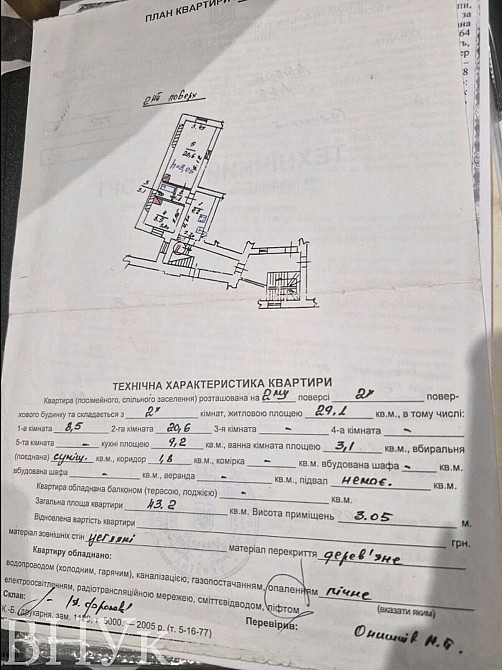 ПЛАН КВАРТИРИ
2ий поверх
5
20,6
h=3,05
3
3,1
4
8,5
1
ТЕХНІЧНА ХАРАКТЕРИСТИКА КВАРТИРИ
Квартира (посімейного, спільного заселення) розташована на 2му поверсі 2х повер-
хового будинку та складається з 2х кімнат, житловою площею 29,1 кв.м., в тому числі:
1-а кімната 8,5 2-га кімната 20,6 3-я кімната – 4-а кімната –
5-та кімната – кухні площею 9,2 кв.м., ванна кімната площею 3,1 кв.м., вбиральня
(поєднана) суміщ. кв.м., коридор 1,8 кв.м., комірка – кв.м. вбудована шафа – кв.м.
вбудована шафа – кв.м., веранда – кв.м., підвал немає. кв.м.
Квартира обладнана балконом (терасою, лоджією) – кв.м.
Загальна площа квартири 43.2 кв.м. Висота приміщень 3.05 м.
Відновлена вартість квартири грн.
матеріал зовнішніх стін цегляні матеріал перекриття дерев'яне
Квартиру обладнано:
водопроводом (холодним, гарячим), каналізацією, газопостачанням, опаленням пічне
електроосвітленням, радіотрансляційною мережею, сміттєвідводом, ліфтом (вказати яким)
Склав: Перевірив:
К.-Б. друкарня. зам. 5000. 2005 р. (т. 5-16-77)
ВНУК